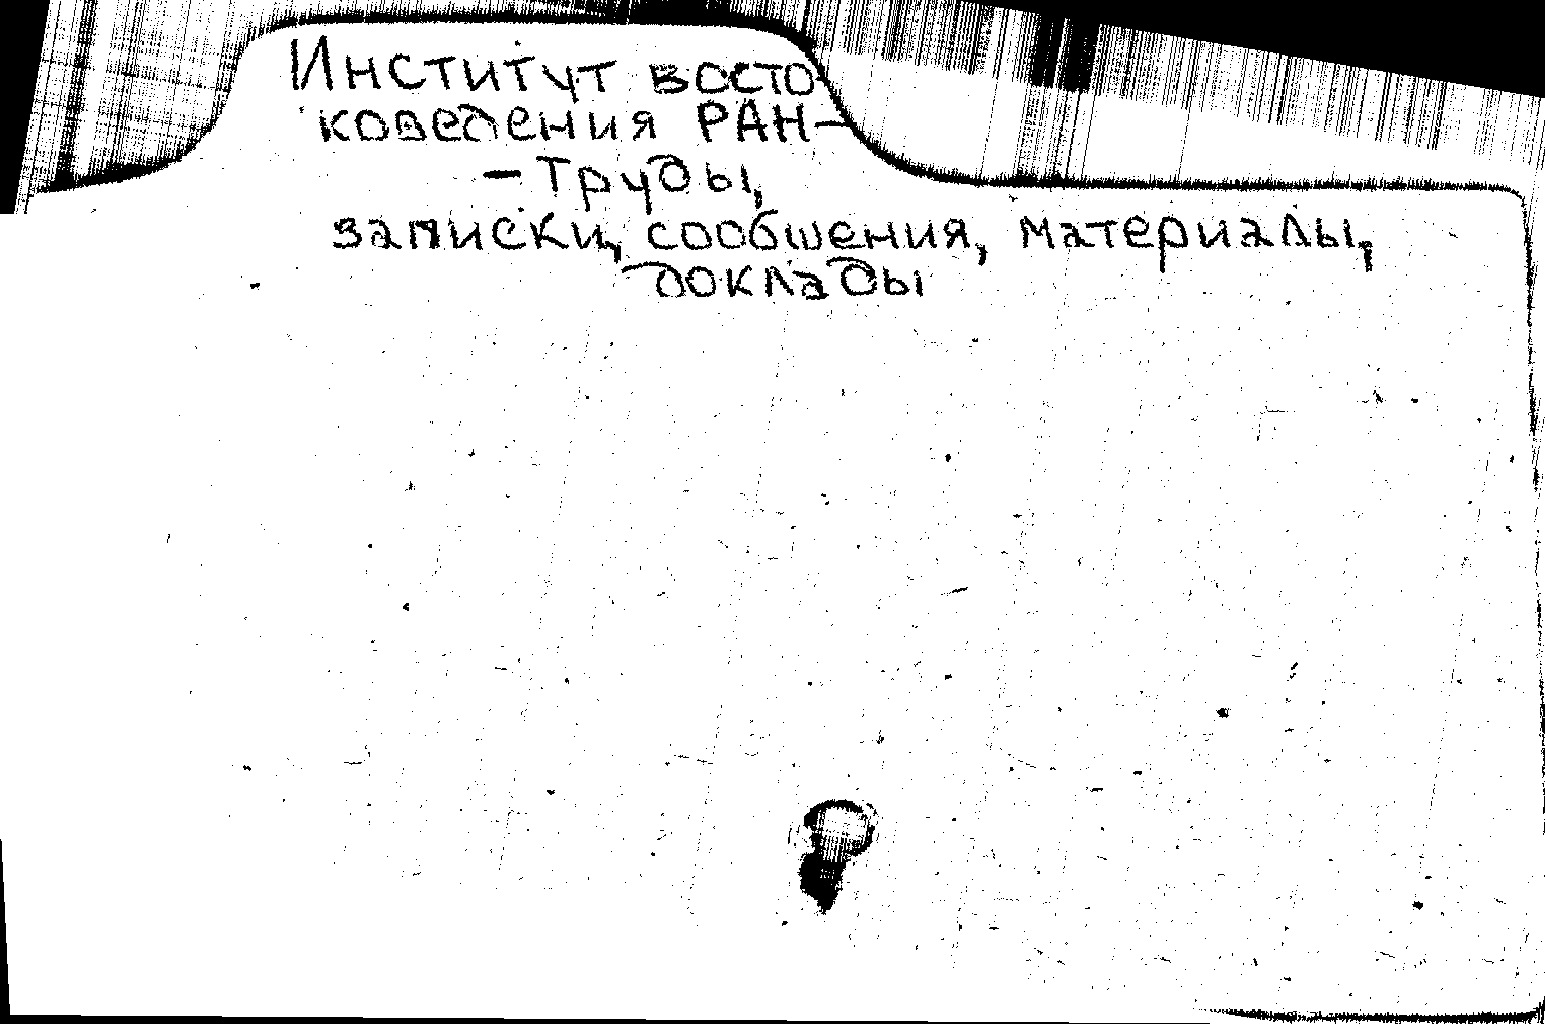 Институт восто-
коведения РАН-
- Труды,
записки, сообшения, материалы,
доклады